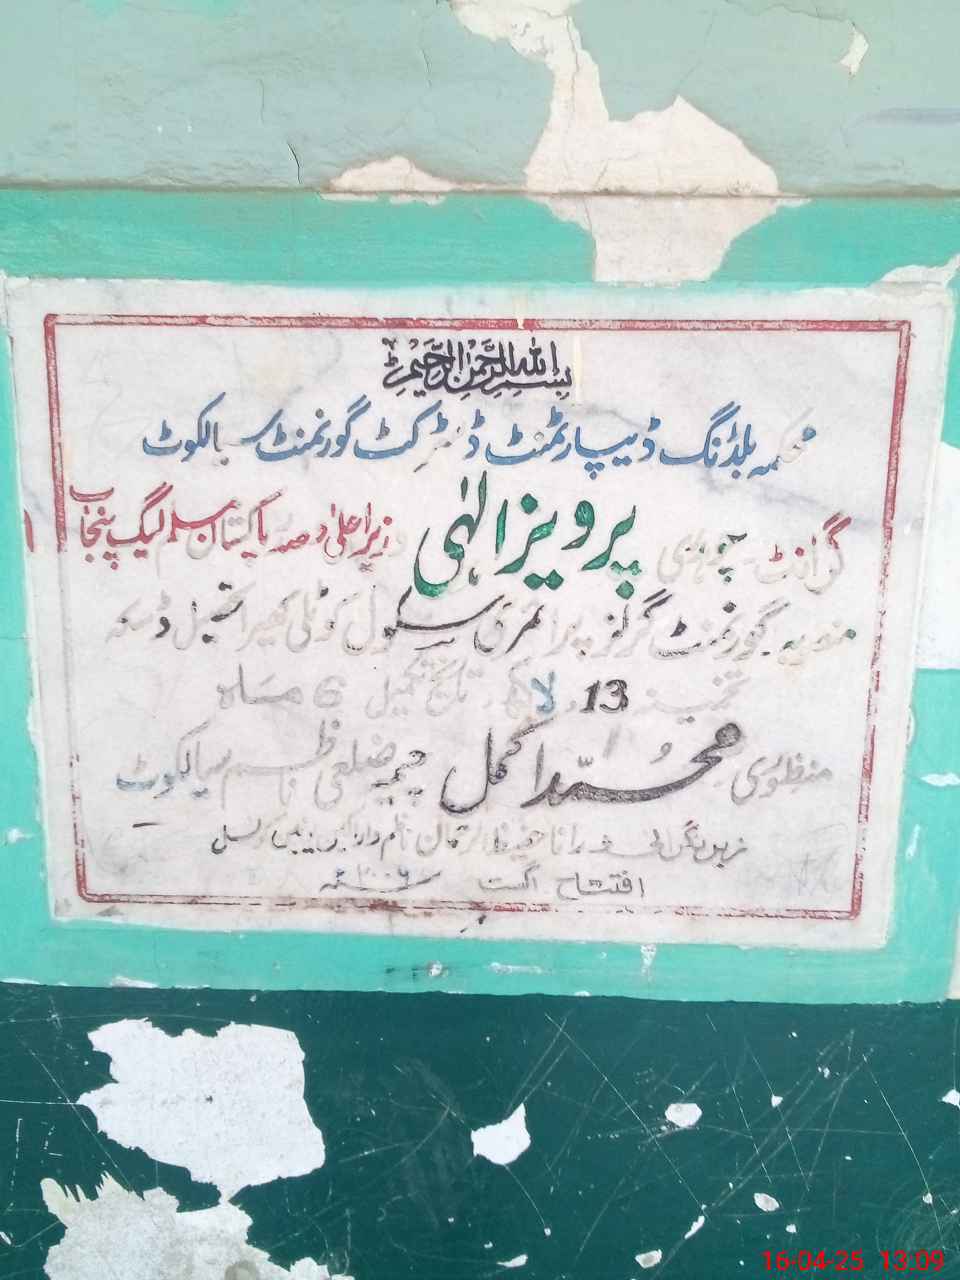 بسم الله الرحمن الرحيم
محکمہ بلڈنگ ڈیپارٹمنٹ ڈسٹرکٹ گورنمنٹ سیالکوٹ
گرانٹ چوہدری پرویز الہٰی وزیر اعلیٰ و صدر پاکستان مسلم لیگ پنجاب
منصوبہ گورنمنٹ گرلز پرائمری سکول کوٹلی تحصیل ڈسکہ
تخمینہ 13 لاکھ تاریخ تکمیل 6 ماہ
منظوری محمد اکمل چیمہ ضلعی ناظم سیالکوٹ
زیر نگرانی رانا حفیظ الرحمان ناظم
افتتاح اگست ۲۰۰۶ء
16-04-25 13:09